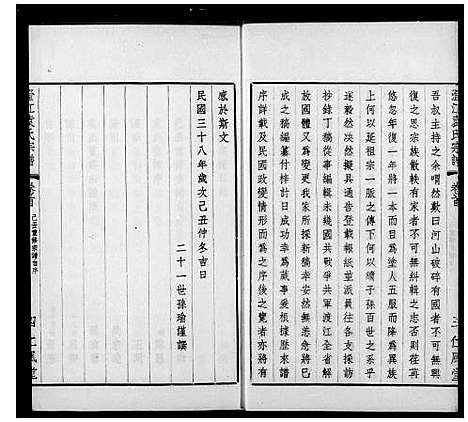 吾叔主持之余喟然歎曰河山破碎有國者不可無
復之思宗族散軼有宋者不可無糾輯之志否則荏苒
悠忽年復一年將一本而目為塗人五服而降為異族
上何以延祖宗一脈之傳下何以續子孫百世之系乎
遂毅然決然擬具通告登報紙並派員往各支採訪
抄錄丁稿從事編輯未幾國共戰爭共軍渡江全省解
放國體又為變更我族所採新稿幸安然無恙急將已
成之稿編纂付梓計日成功幸為蕆事爰根據歷來譜
序詳載及以政體變更情形而為之序後之覽者亦將有
感於斯文
民國三十八年歲次己丑仲冬吉日
二十一世孫瑜謹譔
澄江袁氏宗譜
卷首
三 仁風堂
澄江袁氏宗譜
卷首
己丑重修宗譜自序
四 仁風堂